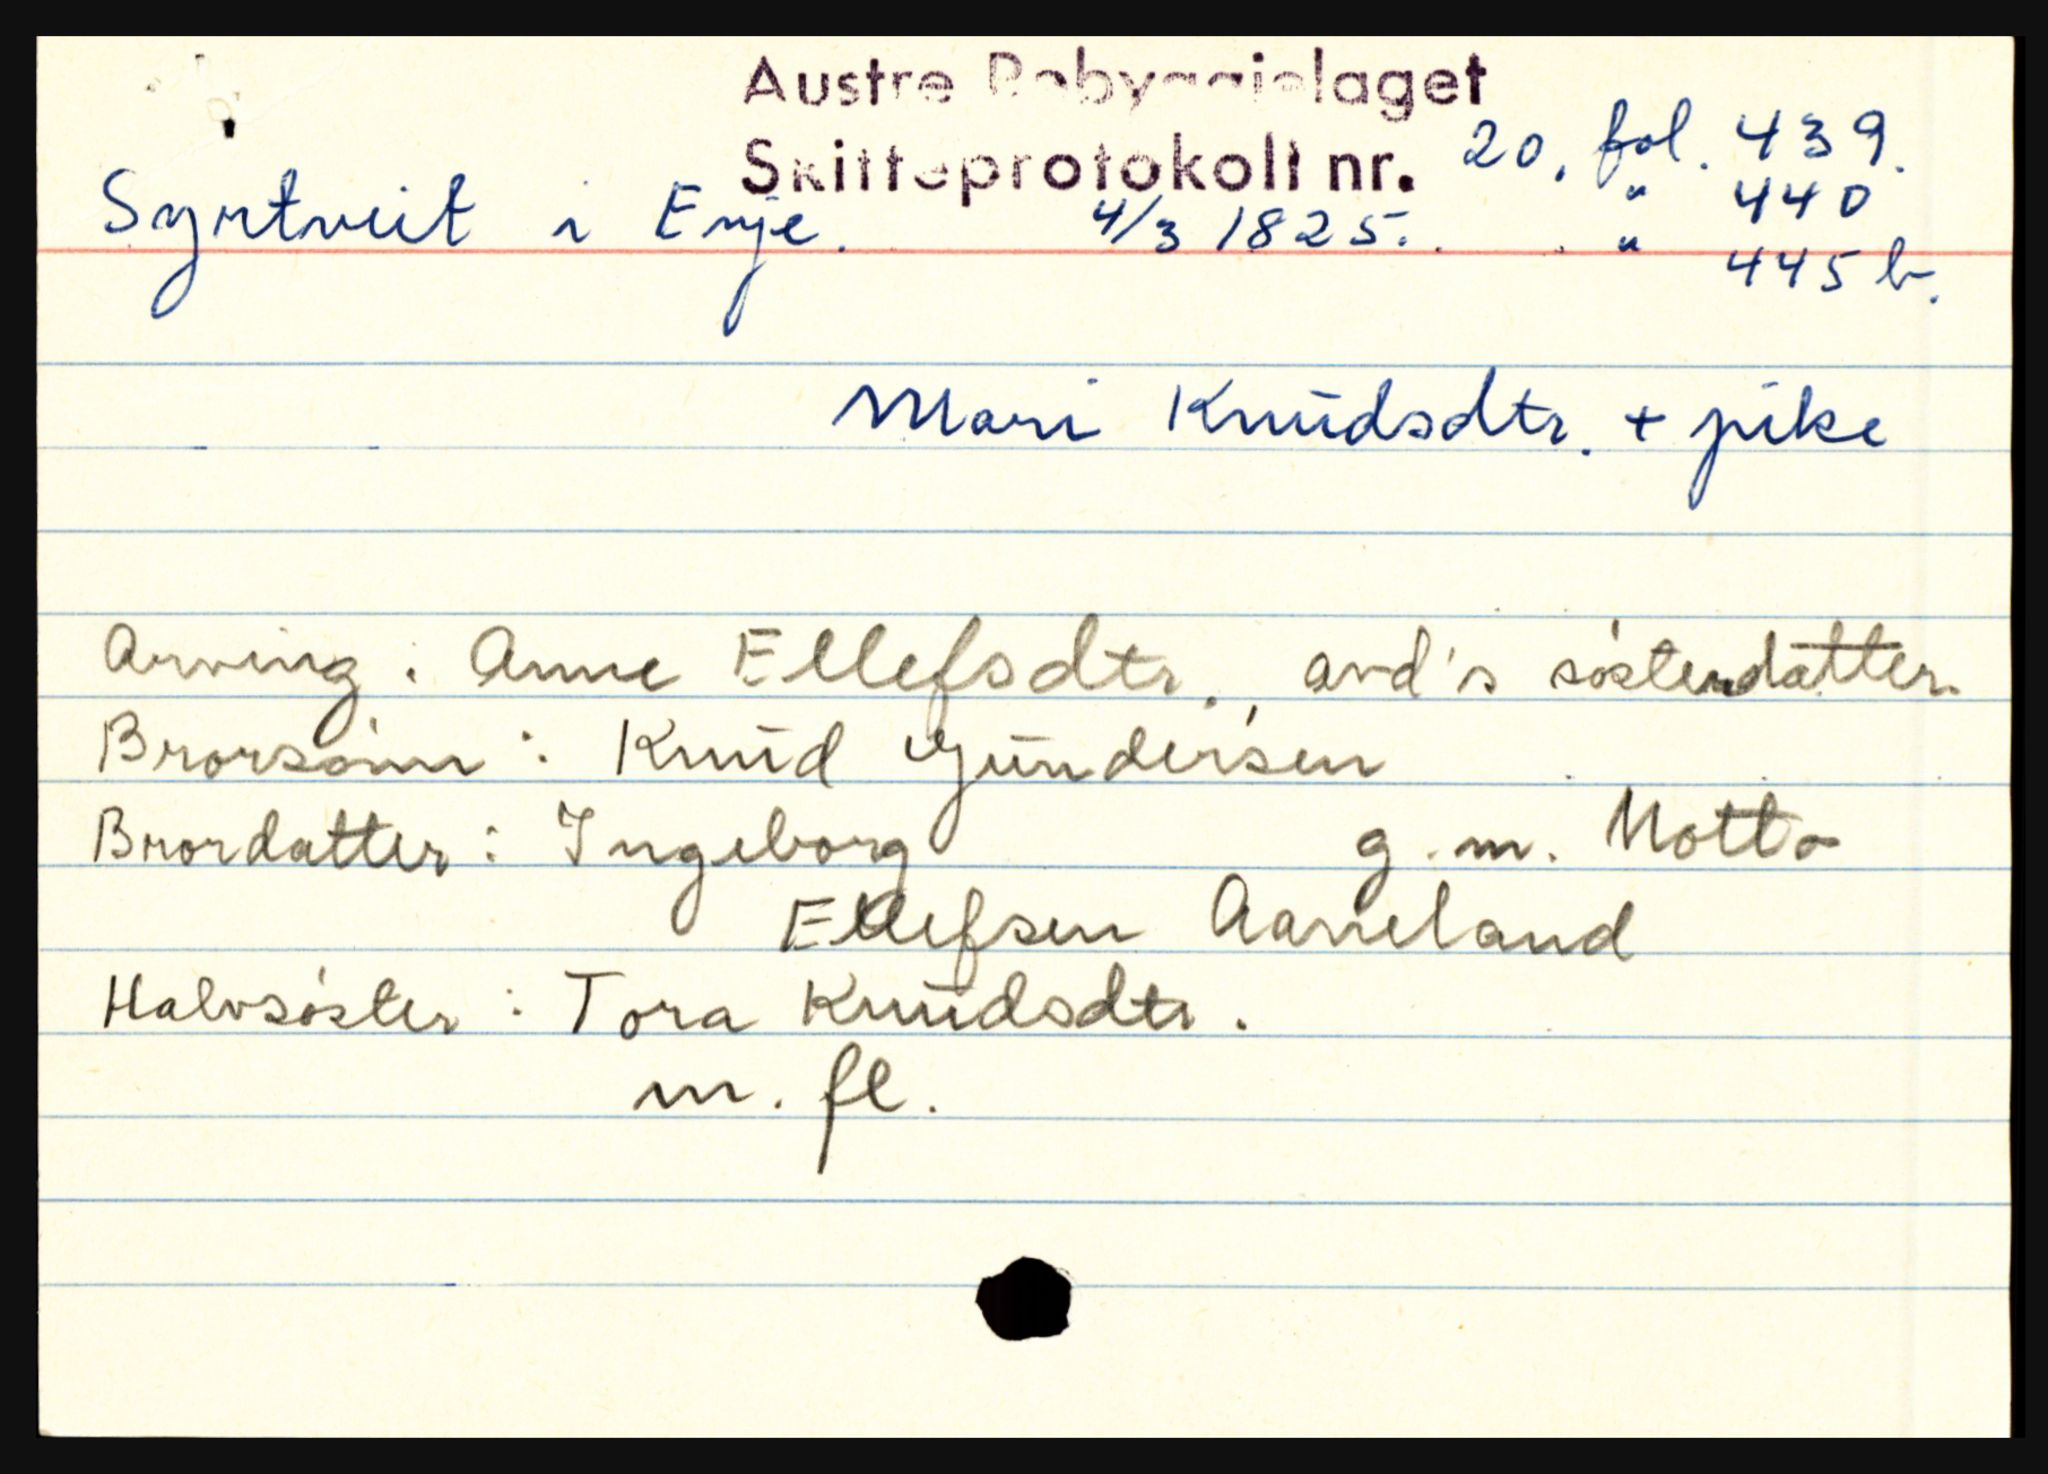 Austre Robyggjelaget
Skifteprotokoll nr. 20. fol. 439.
" 440
Syrtveit i Evje. 4/3 1825. " 445 b.
Mari Knudsdtr. + pike
Arving: Anne Ellefsdtr. avd's søsterdatter.
Brorsønn: Knud Gundersen
Brordatter: Ingeborg g.m. Notto
Ellefsen Aaneland
Halvsøster: Tora Knudsdtr.
m. fl.